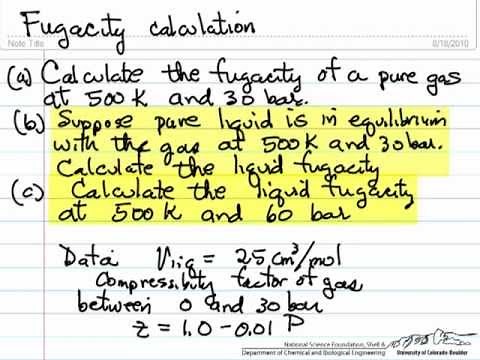 Fugacity calculation
Note Title
8/18/2010
(a) Calculate the fugacity of a pure gas
at 500 K and 30 bar.
(b) Suppose pure liquid is in equilibrium
with the gas at 500 K and 30 bar.
Calculate the liquid fugacity
(c) Calculate the liquid fugacity
at 500 K and 60 bar
Data: Vliq = 25 cm³/mol
Compressibility factor of gas
between 0 and 30 bar
z = 1.0 - 0.01 P
National Science Foundation, Shell &
Department of Chemical and Biological Engineering
University of Colorado Boulder